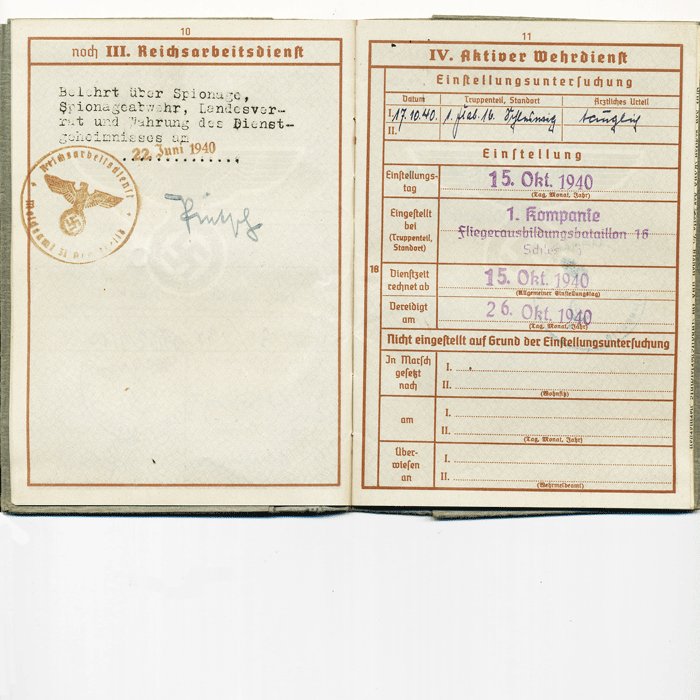 10
noch III. Reichsarbeitsdienst
Belehrt über Spionage,
Spionageabwehr, Landesver-
rat und Wahrung des Dienst-
geheimnisses am
22. Juni 1940
Reichsarbeitsdienst
11
IV. Aktiver Wehrdienst
Einstellungsuntersuchung
Datum Truppenteil, Standort Ärztliches Urteil
I. 17.10.40. 1. Fl.Ab. 16. Schleswig tauglich
II.
Einstellung
Einstellungs-
tag
15. Okt. 1940
(Tag, Monat, Jahr)
Eingestellt
bei
(Truppenteil,
Standort)
1. Kompanie
Fliegerausbildungsbataillon 16
Schles
16
Dienstzeit
rechnet ab
15. Okt. 1940
(Allgemeiner Einstellungstag)
Vereidigt
am
26. Okt. 1940
(Tag, Monat, Jahr)
Nicht eingestellt auf Grund der Einstellungsuntersuchung
In Marsch
gesetzt
nach
I.
II.
(Wohnsitz)
am
I.
II.
(Tag, Monat, Jahr)
Über-
wiesen
an
I.
II.
(Wehrmeldeamt)